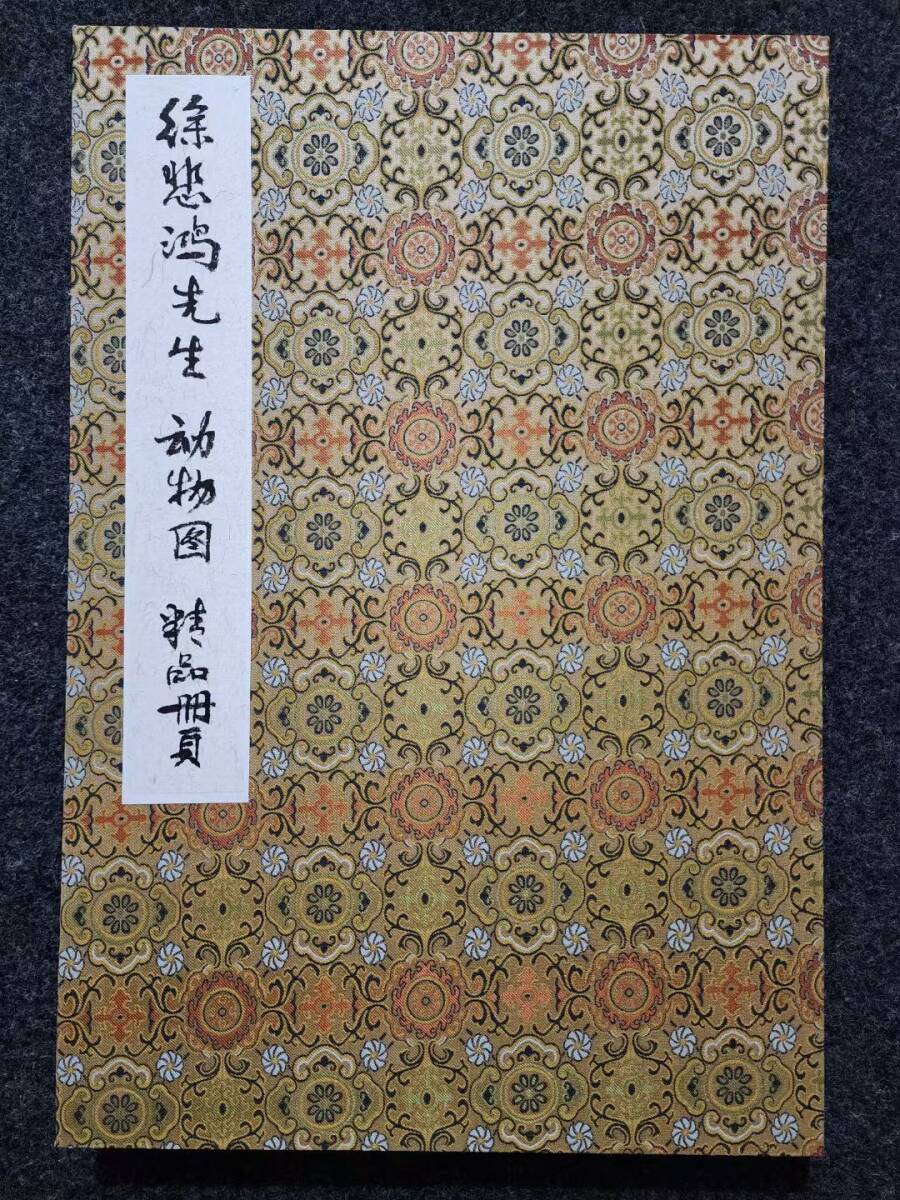 徐悲鸿先生 动物图 精品册頁